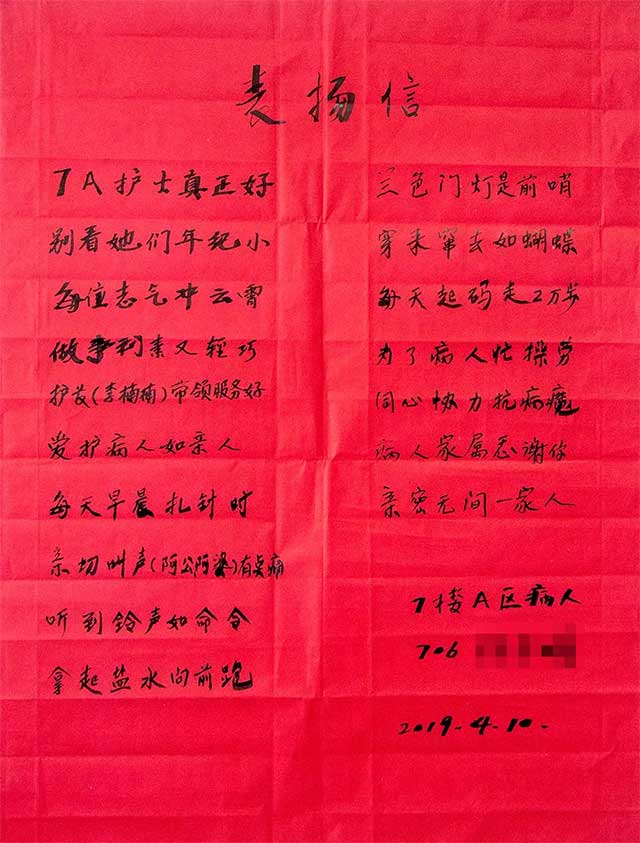 表扬信
7A护士真正好
别看她们年纪小
每位志气冲云霄
做事利素又轻巧
护长(李楠楠)带领服务好
爱护病人如亲人
每天早晨扎针时
亲切叫声(阿公阿婆)有点痛
听到铃声如命令
拿起盐水向前跑
兰色门灯是前哨
穿来窜去如蝴蝶
每天起码走2万步
为了病人忙操劳
同心协力抗病魔
病人家属忍谢你
亲密无间一家人
7楼A区病人
706
2019-4-10-